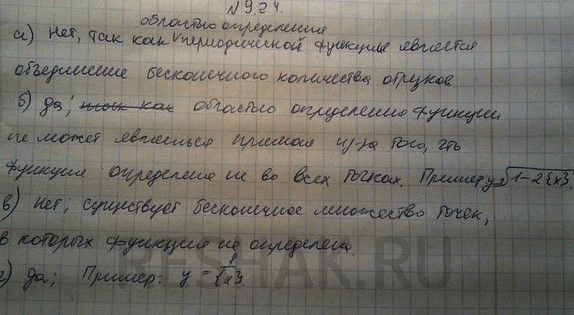 N 9.24.
областью определения
а) нет, так как периодической функции является
объединение бесконечного количества отрезков
б) да; так как областью определения функции
не может являться прямая из-за того, что
функция определена не во всех точках. Пример y=√1-2{x}.
в) нет; существует бесконечное множество точек,
в которых функция не определена.
г) да; Пример: y = 1/{x}
RESHAK.RU